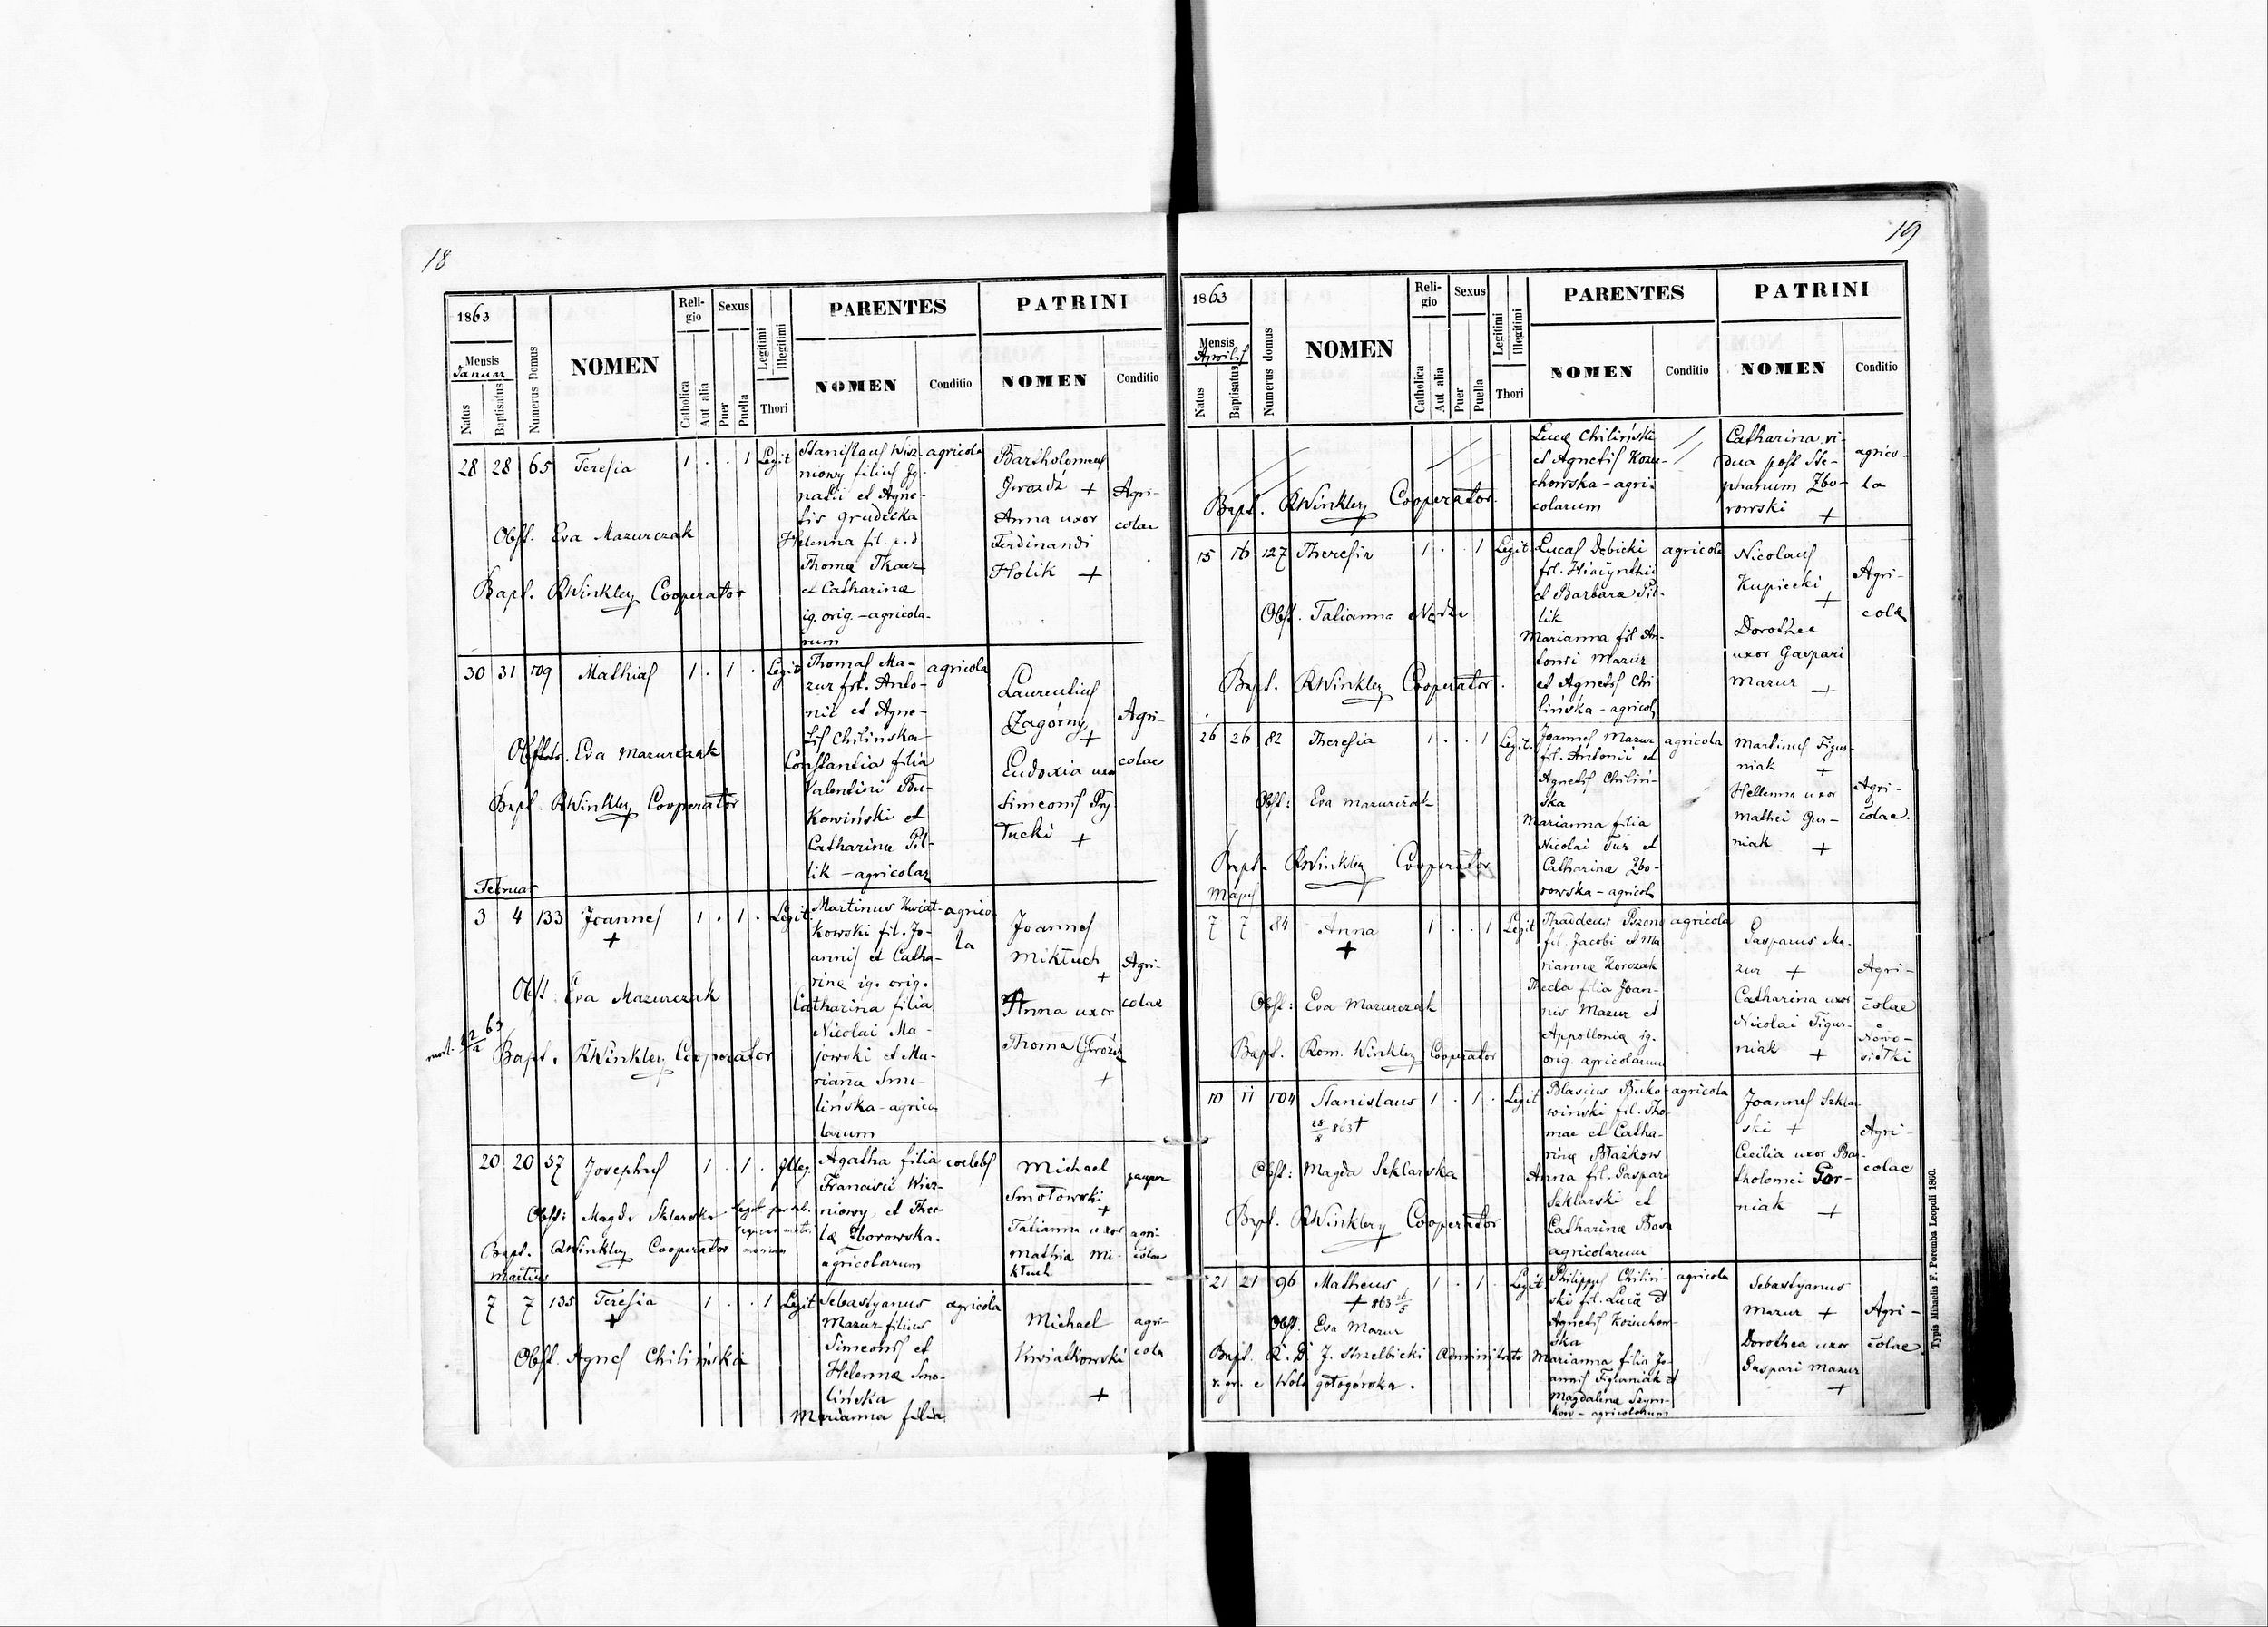 18
1863
Mensis
Januar
Natus
Baptisatus
Numerus Domus
NOMEN
Reli-
gio
Catholica
Aut alia
Sexus
Puer
Puella
Legitimi
Illegitimi
Thori
PARENTES
NOMEN
Conditio
PATRINI
NOMEN
Conditio
28 28 65 Teresia 1 . . 1 Legit
Obst. Eva Mazurczak
Bapt. RWinkley Cooperator
Stanislaus Wisz-
niowy filius Ig-
natii et Agne-
tis Grudecka
Helenna fil. r. d
Thoma Tkacz
et Catharinæ
ig. orig. - agricola-
rum
agricola
Bartholomeus
Gwozdz +
Anna uxor
Ferdinandi
Holik +
Agri-
colae
30 31 109 Mathias 1 . 1 . Legit
Eva Mazurczak
Bapt. RWinkley Cooperator
Thomas Ma-
zur fil. Anto-
nii et Agne-
tis Chilinska
Constantia filia
Valentini Bu-
kowiński et
Catharinæ Pil-
lik - agricolar
agricola
Laurentius
Zagórny
+
Eudoxia uxor
Simeonis
+
Agri-
colae
Februar
3 4 133 Joannes 1 . 1 . Legit
+
Obst: Eva Mazurczak
Bapt. RWinkley Cooperator
Martinus Kwiat-
kowski fil. Jo-
annis et Catha-
rinæ ig. orig.
Catharina filia
Nicolai Ma-
jowski et Ma-
rianna Smo-
lińska - agrico
larum
agrico
la
Joannes
Mikłuch
+
Anna uxor
Thoma
+
Agri-
colae
20 20 57 Josephus 1 . 1 . Illeg.
Obst: Magda Sklarska
Bapt. RWinkley Cooperator
Agatha filia
Francisci Wisz-
niowy et Thec-
læ Zborowska.
agricolarum
coelebs
Michael
Smołowski
+
Tatianna uxor
Mathia Mi-
kłuch
agri-
colae
Martius
7 7 135 Teresia 1 . . 1 Legit
+
Obst. Agnes Chilińska
Sebastyanus
Mazur filius
Simeonis et
Helennæ Smo-
lińska
Marianna filia
agricola
Michael
Kwiatkowski
+
agri-
cola
19
1863
Mensis
Aprilis
Natus
Baptisatus
Numerus domus
NOMEN
Reli-
gio
Catholica
Aut alia
Sexus
Puer
Puella
Legitimi
Illegitimi
Thori
PARENTES
NOMEN
Conditio
PATRINI
NOMEN
Conditio
Bapt. RWinkley Cooperator.
Lucæ Chiliński
et Agnetis Kozu-
chowska - agri-
colarum
Catharina vi-
dua post Ste-
phanum Zbo-
rowski
+
agrico-
la
15 16 127 Theresia 1 . . 1 Legit
Obst. Tatianna
Bapt. RWinkley Cooperator.
Lucas Dębicki
fil. Hiacynthii
et Barbara Pil-
lik
Marianna fil An-
tonii Mazur
et Agnetis Chi-
lińska - agricol
agricola
Nicolaus
Kupiecki
+
Dorothea
uxor Gaspari
Mazur +
Agri-
colæ
26 26 82 Theresia 1 . . 1 Legit.
Obst: Eva Mazurczak
Bapt. RWinkley Cooperator
Joannes Mazur
fil. Antonii et
Agnetis Chiliń-
ska
Marianna filia
Nicolai Tur et
Catharinæ Zbo-
rowska - agricol
agricola
Martinus Figur-
niak +
Hellenna uxor
Mathei Gur-
niak +
Agri-
colae.
Majus
7 7 84 Anna 1 . . 1 Legit
+
Obst: Eva Mazurczak
Bapt. Rom. Winkley Cooperator
Thaddeus Pszon
fil. Jacobi et Ma
riannæ Korczak
Thecla filia Joan-
nis Mazur et
Appollonia ig.
orig. agricolarum
agricola
Gasparus Ma-
zur +
Catharina uxor
Nicolai Figur-
niak +
Agri-
colae
Nowo-
siółki
10 11 104 Stanislaus 1 . 1 . Legit
28/8 863 +
Obst: Magda Szklarska
Bapt. RWinkley Cooperator
Blasius Buko-
wiński fil. Tho-
mae et Catha-
rinæ Błażkow
Anna fil. Gaspari
Szklarski et
Catharinæ
agricolarum
agricola
Joannes Szklar-
ski +
Cecilia uxor Bar-
tholomei Gor-
niak +
Agri-
colae
21 21 96 Matheus 1 . 1 . Legit.
+ 863 26/5
Obst. Eva Mazur
Bapt. R. D. J. Strzelbicki Administrator
r. gr. e Wola gołogórska.
Philippus Chiliń-
ski fil. Lucæ et
Agnetis Kozuchow-
ska
Marianna filia Jo-
annis Figurniak et
Magdalenæ Szym-
ków - agricolarum
agricola
Sebastyanus
Mazur +
Dorothea uxor
Gaspari Mazur
+
Agri-
colae
Typis Mihaelis F. Poremba Leopoli 1860.